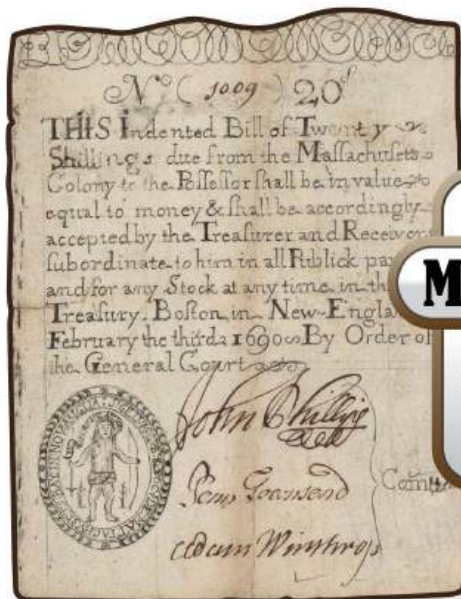 No ( 1009 ) 20s
THIS Indented Bill of Twenty
Shillings due from the Massachusets
Colony to the Possessor shall be in value
equal to money & shall be accordingly
accepted by the Treasurer and Receivers
subordinate to him in all Publick
and for any Stock at any time in
Treasury. Boston in New-England
February the third 1690 By Order of
the General Court
John Phillips
Penn Townsend
Adam Winthrop
M